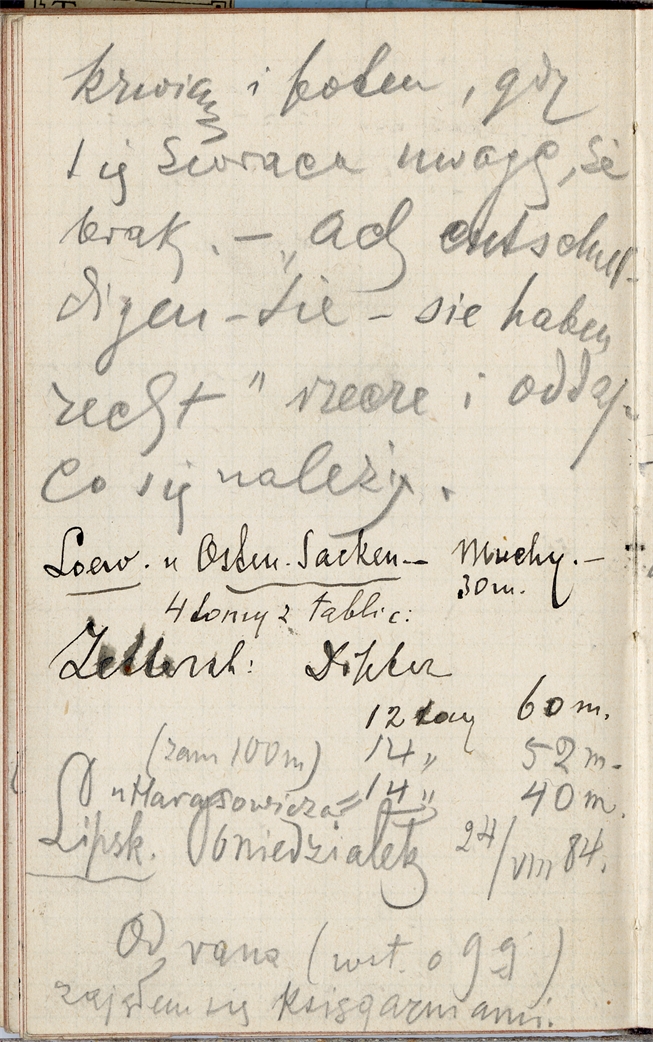 krwią i potem, gdy
się zwraca uwagę, że
brak. – „Ach entschul-
digen – Sie – sie haben
recht" rzecze i oddaje
co się należy.
Loew. u Osten. Sacken – Muchy. –
30 m.
4 tomy z tablic:
Zetterst: Dipter
12 tomy 60 m.
(zam 100 m) 14 „ 52 m.
u Harasowicza = 14 „ 40 m.
Lipsk. Poniedziałek 24/VIII 84.
Od rana (wst. o 9 g)
zająłem się księgarniami.